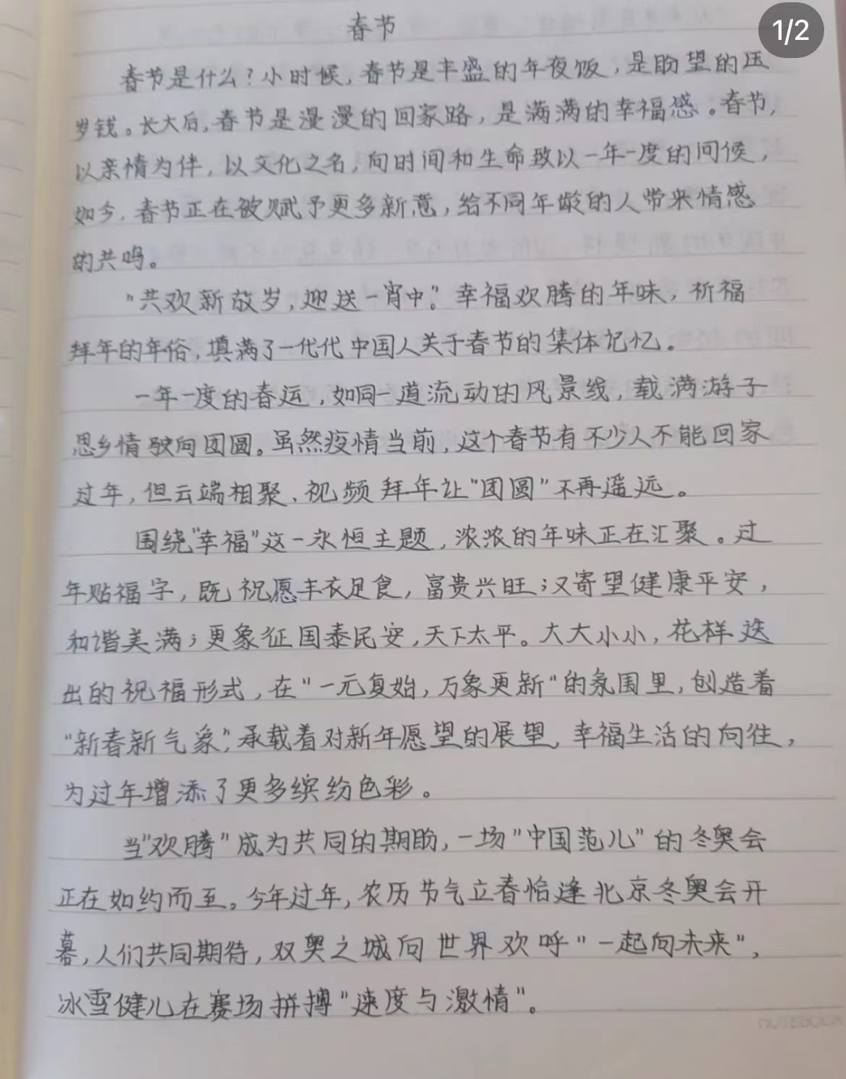 1/2
春节
春节是什么？小时候，春节是丰盛的年夜饭，是盼望的压
岁钱。长大后，春节是漫漫的回家路，是满满的幸福感。春节，
以亲情为伴，以文化之名，向时间和生命致以一年一度的问候，
如今，春节正在被赋予更多新意，给不同年龄的人带来情感
的共鸣。
“共欢新故岁，迎送一宵中”。幸福欢腾的年味，祈福
拜年的年俗，填满了一代代中国人关于春节的集体记忆。
一年一度的春运，如同一道流动的风景线，载满游子
思乡情驶向团圆。虽然疫情当前，这个春节有不少人不能回家
过年，但云端相聚、视频拜年让“团圆”不再遥远。
围绕“幸福”这一永恒主题，浓浓的年味正在汇聚。过
年贴福字，既祝愿丰衣足食，富贵兴旺；又寄望健康平安，
和谐美满；更象征国泰民安，天下太平。大大小小，花样迭
出的祝福形式，在“一元复始，万象更新”的氛围里，创造着
“新春新气象”，承载着对新年愿望的展望，幸福生活的向往，
为过年增添了更多缤纷色彩。
当“欢腾”成为共同的期盼，一场“中国范儿”的冬奥会
正在如约而至。今年过年，农历节气立春恰逢北京冬奥会开
幕，人们共同期待，双奥之城向世界欢呼“一起向未来”，
冰雪健儿在赛场拼搏“速度与激情”。